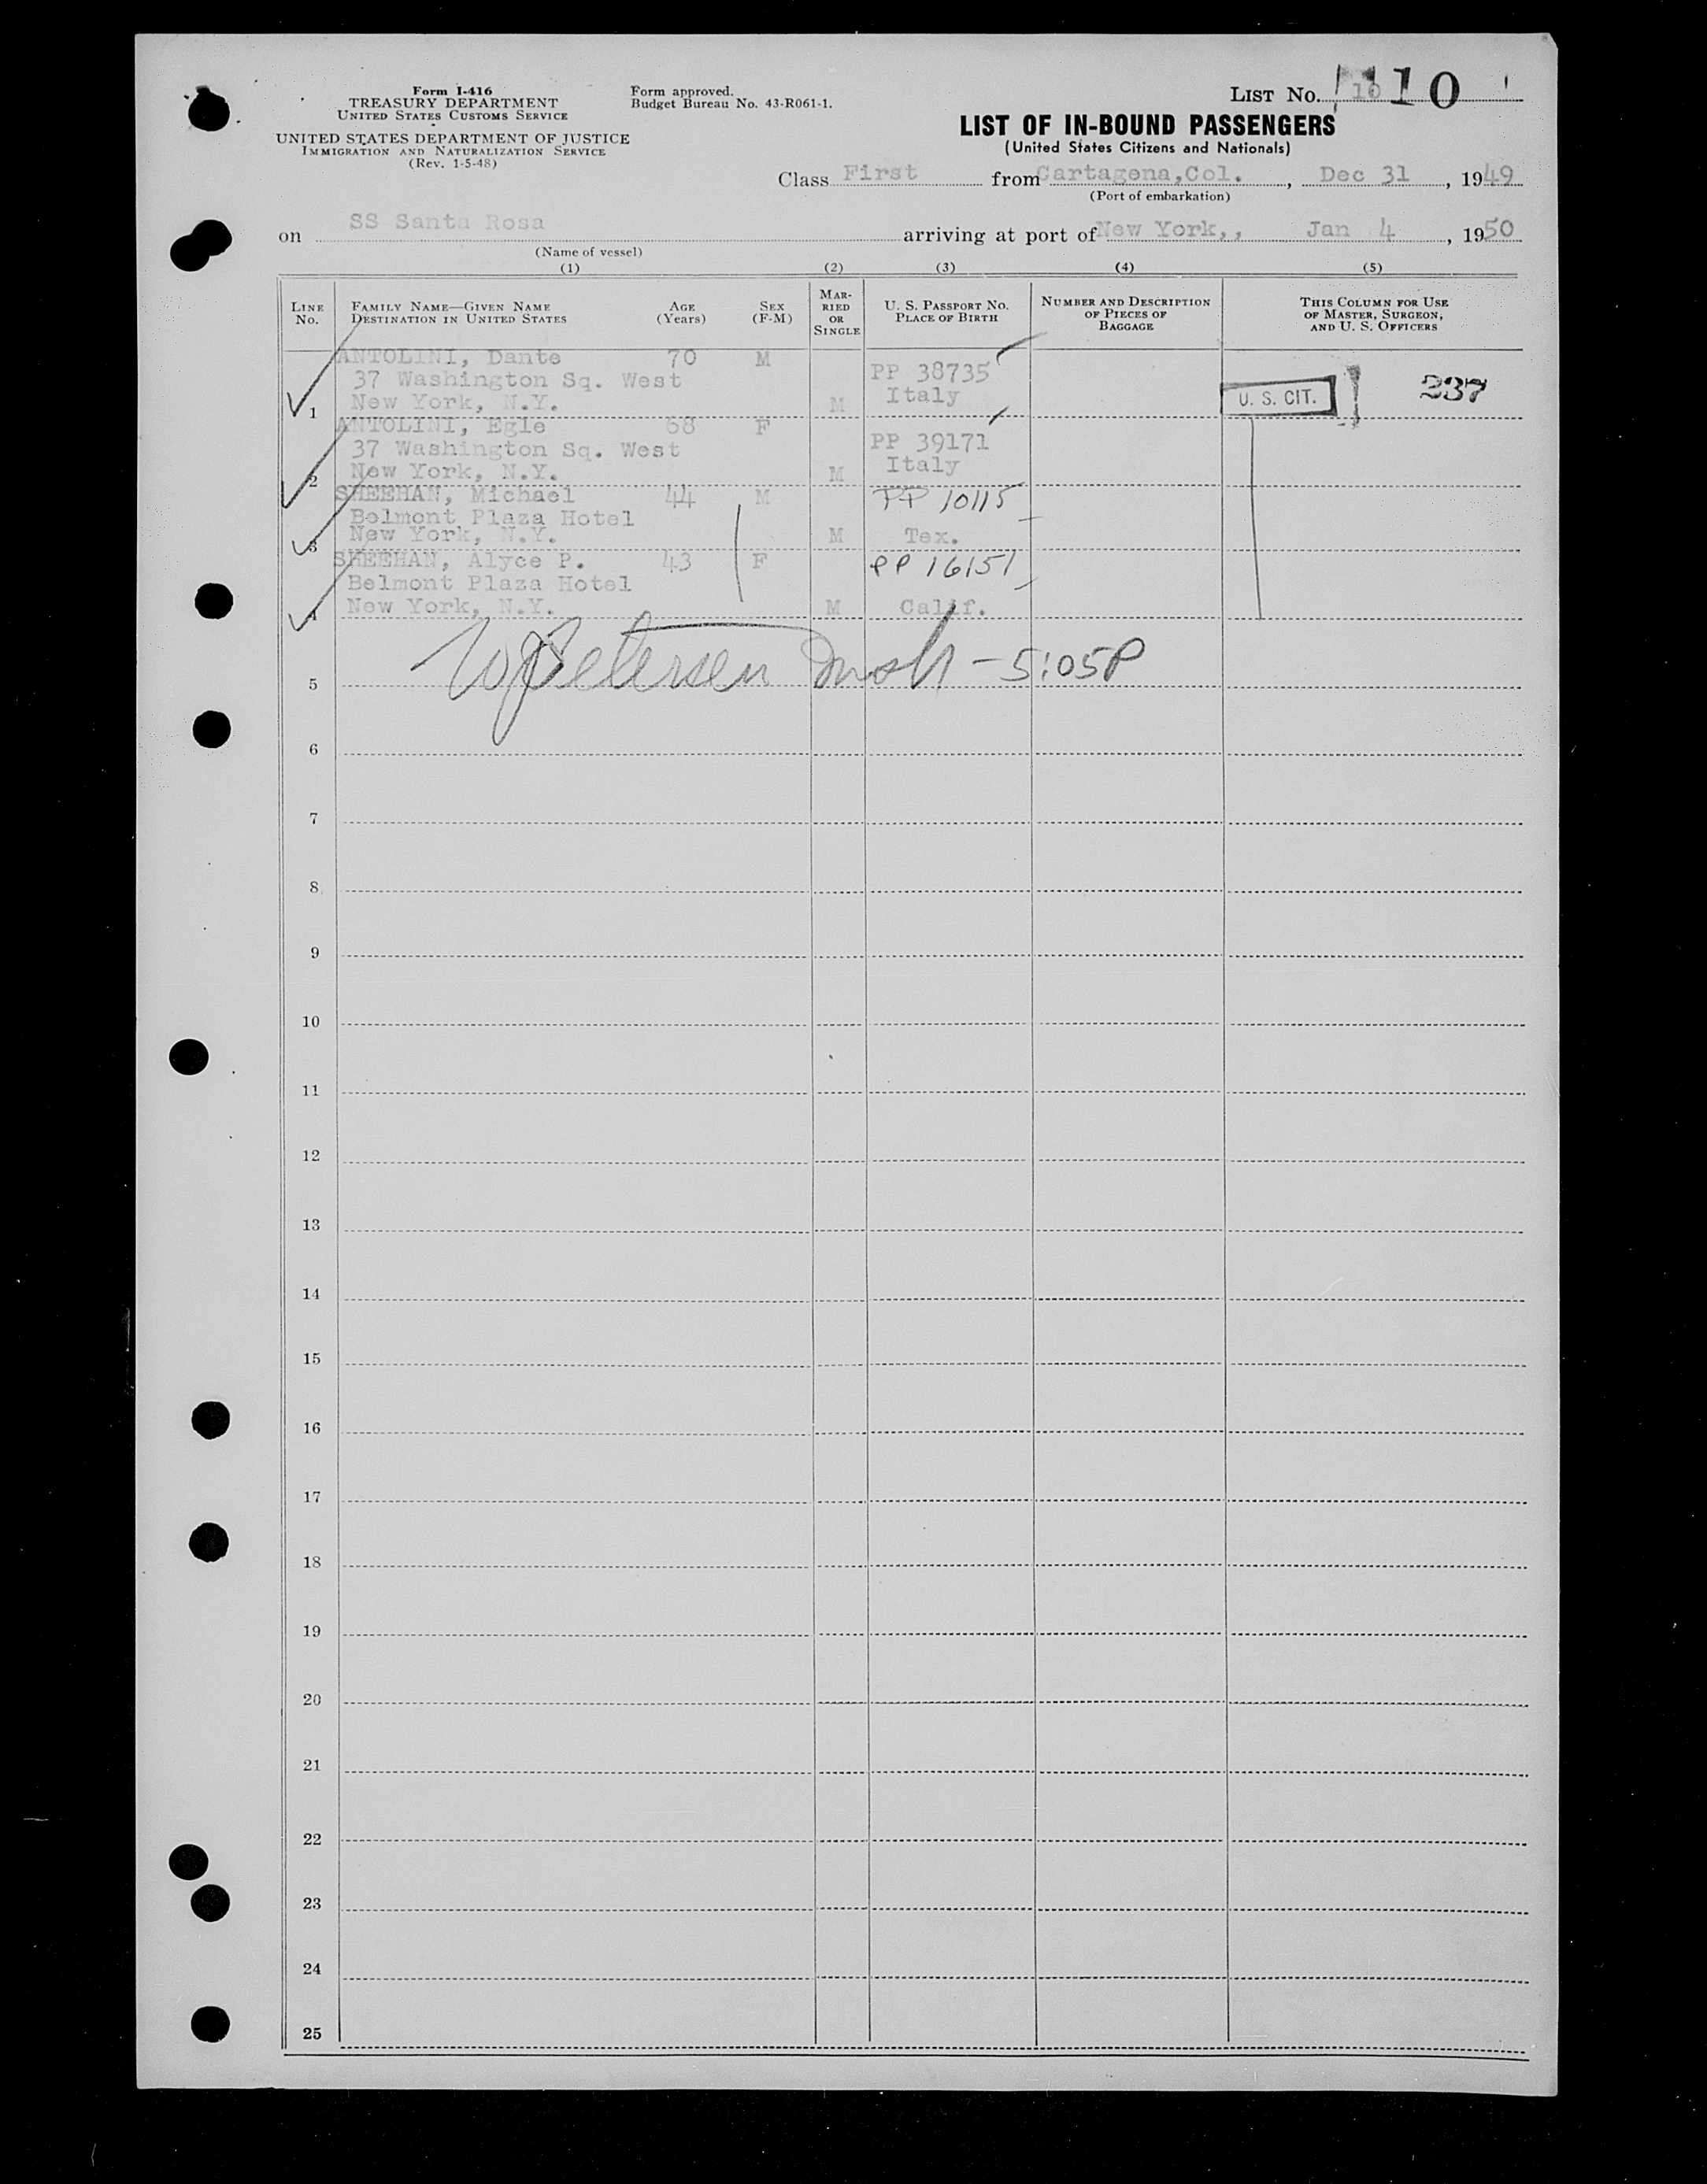 Form I-416
TREASURY DEPARTMENT
UNITED STATES CUSTOMS SERVICE
UNITED STATES DEPARTMENT OF JUSTICE
IMMIGRATION AND NATURALIZATION SERVICE
(Rev. 1-5-48)
Form approved.
Budget Bureau No. 43-R061-1.
LIST NO. 10
LIST OF IN-BOUND PASSENGERS
(United States Citizens and Nationals)
Class First from Cartagena,Col., Dec 31, 1949
(Port of embarkation)
on SS Santa Rosa arriving at port of New York,, Jan 4, 1950
(Name of vessel)
(1) (2) (3) (4) (5)
LINE NO.
FAMILY NAME—GIVEN NAME
DESTINATION IN UNITED STATES
AGE (Years)
SEX (F-M)
MARRIED OR SINGLE
U. S. PASSPORT NO.
PLACE OF BIRTH
NUMBER AND DESCRIPTION OF PIECES OF BAGGAGE
THIS COLUMN FOR USE OF MASTER, SURGEON, AND U. S. OFFICERS
ANTOLINI, Dante 70 M
37 Washington Sq. West PP 38735
1 New York, N.Y. M Italy U. S. CIT. 237
ANTOLINI, Egle 68 F
37 Washington Sq. West PP 39171
2 New York, N.Y. M Italy
SHEEHAN, Michael 44 M PP 10115
Belmont Plaza Hotel
3 New York, N.Y. M Tex.
SHEEHAN, Alyce P. 43 F PP 16151
Belmont Plaza Hotel
4 New York, N.Y. M Calif.
5 Petersen - 5:05P
6
7
8
9
10
11
12
13
14
15
16
17
18
19
20
21
22
23
24
25